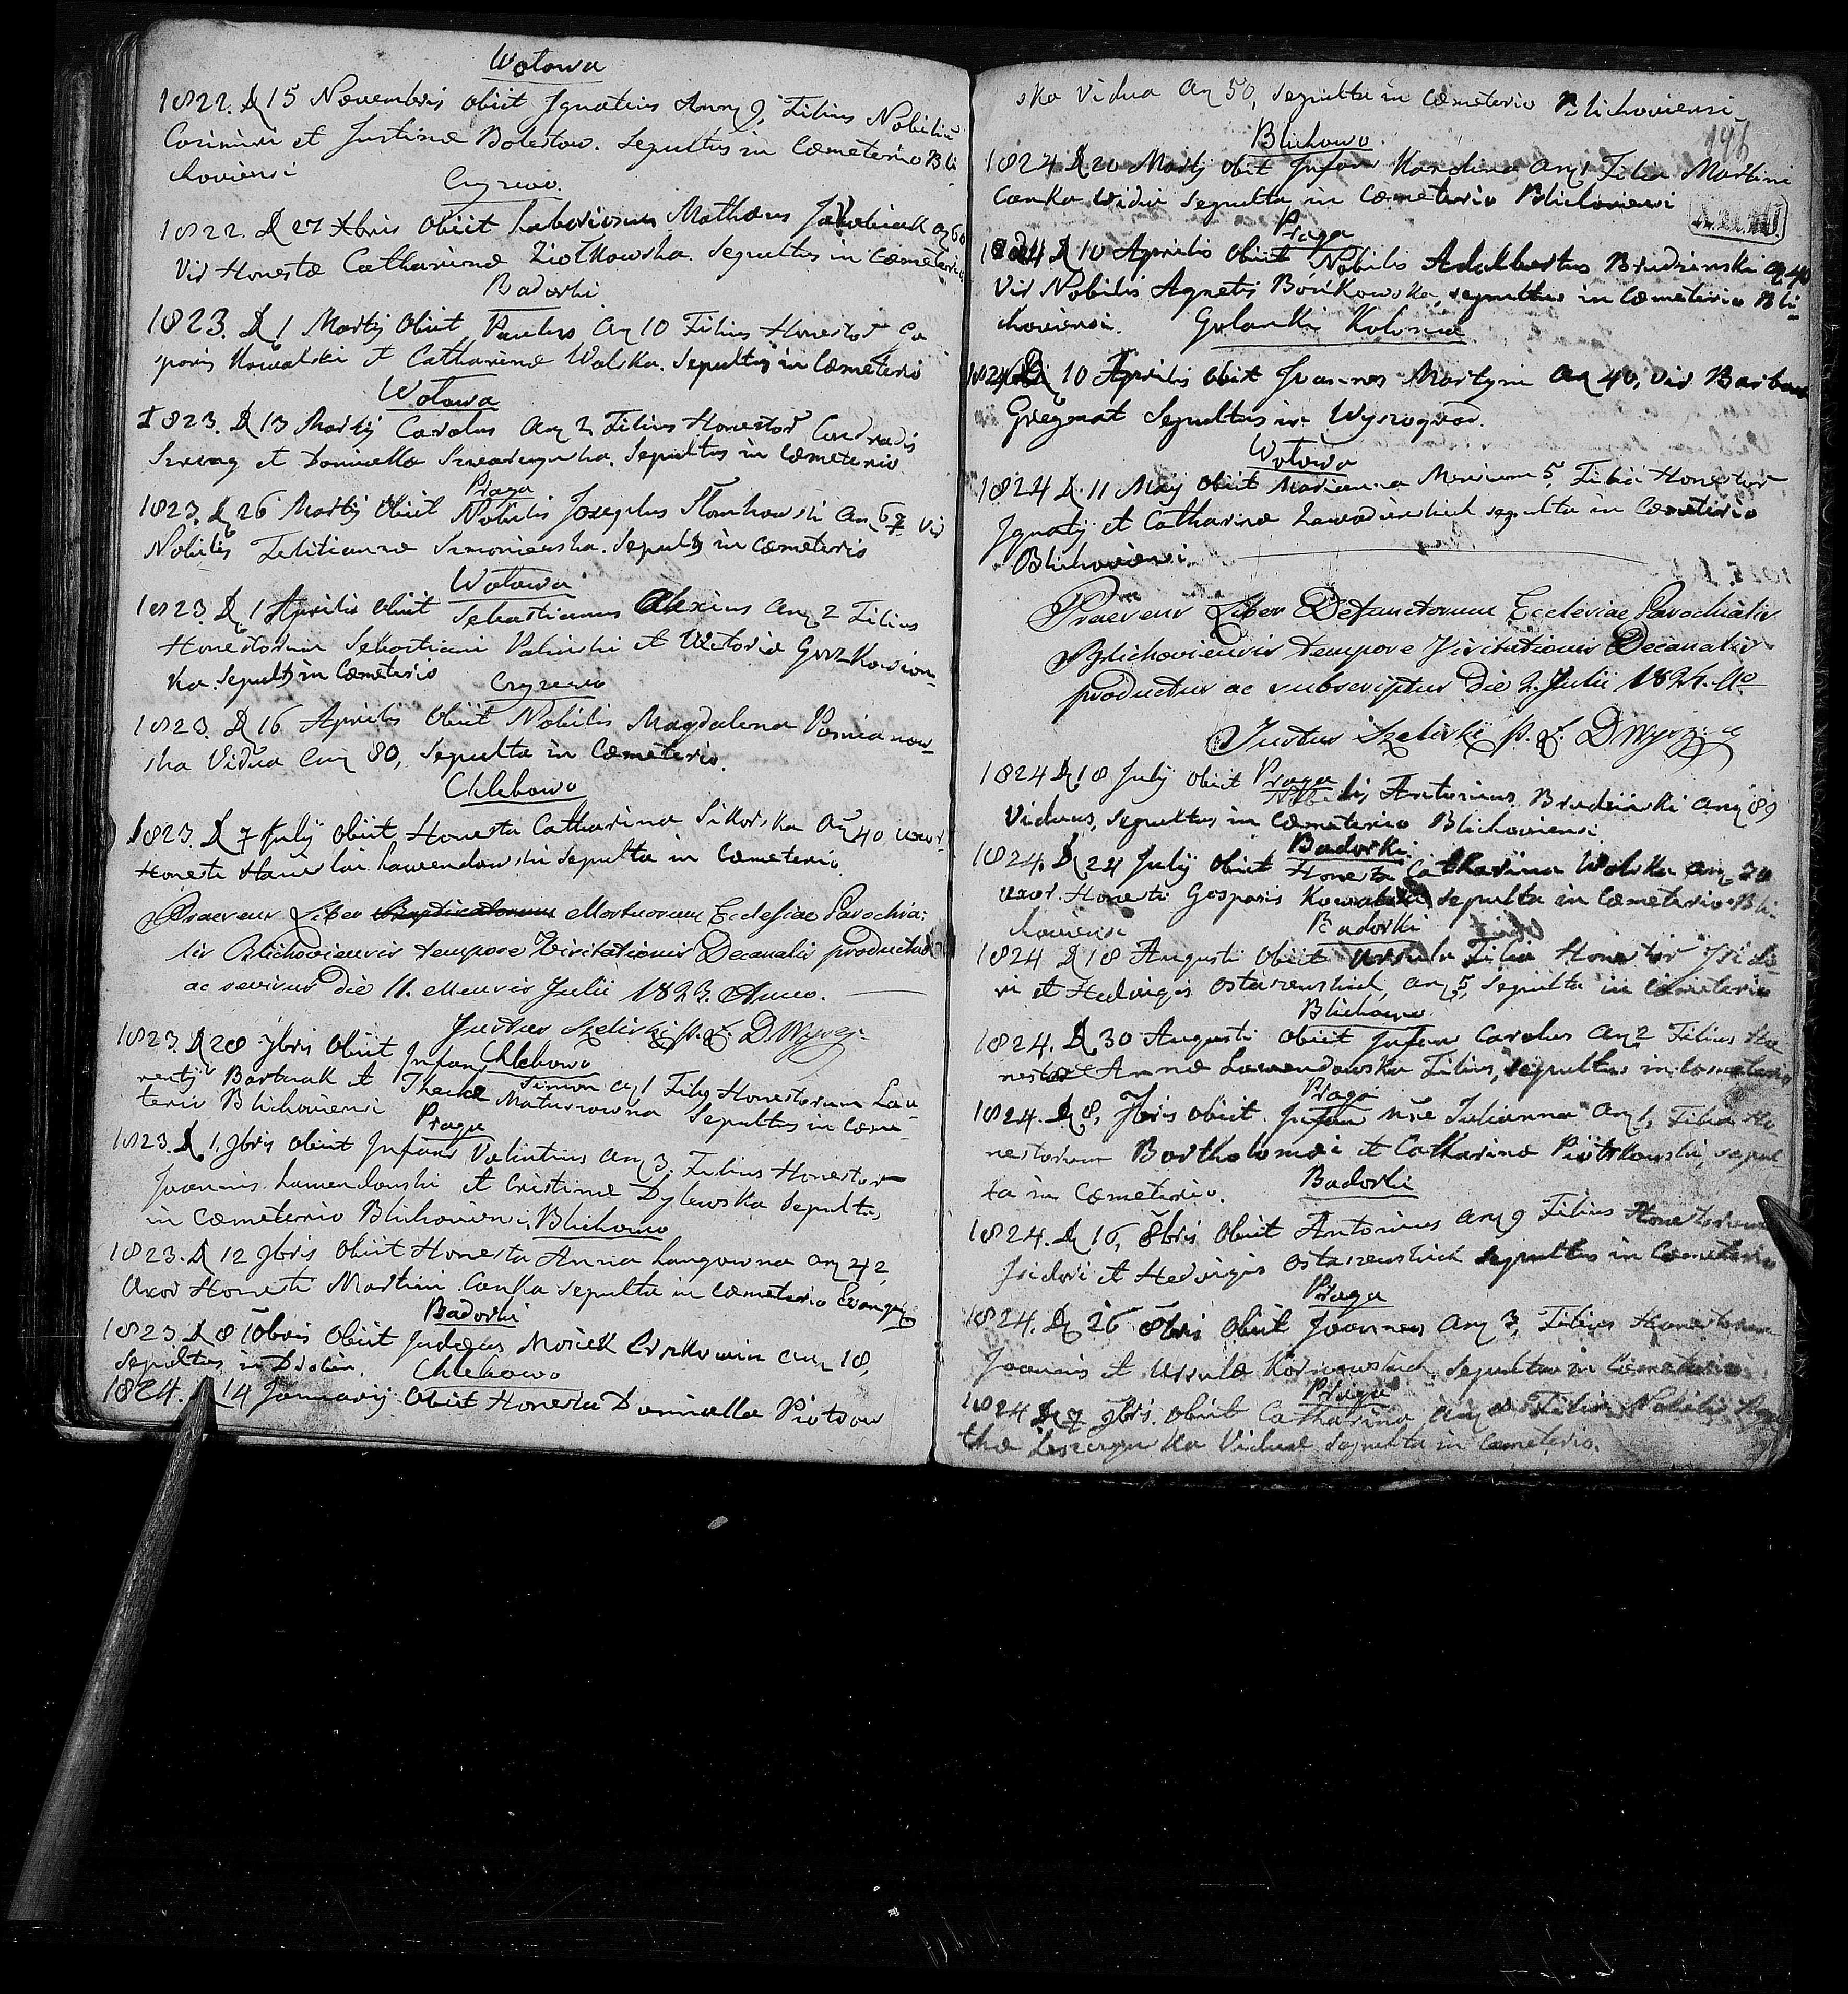 Wotowa
1822. D 15 Novembris obiit Ignatius Ann 9, Filius Nobiliū
Casimiri et Justinæ Bolestow. Sepultus in Cæmeterio Bli
choviensi
Cryzewo.
1822. D 27 Xbris obiit Laboriosus Mathæus an 60
Vir Honestæ Catharinæ Ziotkowska. Sepultus in Cæmeterio
Badorki
1823. D 1 Martij Obiit Paulus An 10 Filius Honestor Ga
sparis Kowalski et Catharinæ Walska. Sepultus in Cæmeterio
Wotowa
1823. D 13 Martij Carolus An 2 Filius Honestor Condradis
et Daniella Sepultus in Cæmeterio
Praga
1823. D 26 Martij Obiit Nobilis Josephus Stomkowski An 67 Vir
Nobilis Felitiannæ Sepults in Cæmeterio
Wotowa
1823. D 1 Aprilis Obiit Sebastianus Alexius An 2 Filius
Honestorum Sebastiani Palinski et Victoriæ
ka. Sepults in Cæmeterio
Cryzewo
1823. D 16 Aprilis Obiit Nobilis Magdalena Poznianow
ska Vidua An 80, Sepulta in Cæmeterio.
Chlebowo
1823. D 7 July Obiit Honesta Catharina Sikorska An 40 uxor
Honesti Stanislai Lawendowski sepulta in Cæmeterio.
Praesens Liber Baptisatorum Mortuorum Ecclesiae Parochia:
lis Blichoviensis tempore Visitationis Decanalis productus
ac revisus die 11. Mensis Julii 1823. Anno.
Justus Szeliski p. D. Wysz:
1823. D 28 7bris Obiit Infans Chlebowo
Simon An 1 Filius Honestorum Lau
rentij Bartniak et Theclæ Maturowna Sepultus in Cæme
terio Blichoviensi
Praga
1823. D 1. 9bris Obiit Infans Valentius An 3. Filius Honestor
Joannis Lawendowski et Cristinæ Dylewska Sepultus
in Cæmeterio Blichoviensi, Blichowo
1823. D 12 9bris Obiit Honesta Anna Langowna An 42
Uxor Honesti Martini Canka Sepulta in Cæmeterio Evangeli
Badorki
1823 D 8 10bris Obiit Judæus Mosiek An 18,
Sepultus in
Chlebowo
1824. D 14 January Obiit Honesta Daniella Piotrow
ska Vidua An 50, sepulta in Cæmeterio Blichoviensi
196
Blichowo.
1824 D 20 Martij Obiit Infans Karolina An 1 Filia Martini
Canka Vidui Sepulta in Cæmeterio Blichoviensi
Praga
1824 D 10 Aprilis Obiit Nobilis Adalbertus Brudzinski An 40
Vir Nobilis Agnetis Bońkowska, sepultus in Cæmeterio Bli-
choviensi.
Golanki Kolonia
1824 D 10 Aprilis Obiit Joannes Martyni An 40, Vir Barbaræ
Gregorat Sepultus in Wyszogrod.
Wotowa
1824 D. 11 May Obiit Marianna Mensium 5, Filia Honestor
Ignatij et Catharinæ Zawadzkich sepulta in Cæmeterio
Blichoviensi
Praesens Liber Defunctorum Ecclesiae Parochialis
Blichoviensis tempore Visitationis Decanalis
productus ac subscriptus Die 2. Julii 1824. Ao
Justus Szeliski p. D. Wysz:
1824 D 18 July Obiit Praga
Nobilis Antonius Brudzinski An 89
Viduus, sepultus in Cæmeterio Blichoviensi
Badorki.
1824. D 24 July Obiit Honesta Catharina Walska An 30
uxor Honesti Gasparis Kowalski sepulta in Cæmeterio Bli-
choviensi
Badorki
1824 D 18 Augusti Obiit Ursula Filia Honestor Isido
ri et Hedvigis Ostaszewskich, An 5, Sepulta in Cæmeterio
Blichowo
1824. D 30 Augusti Obiit Infans Carolus An 2 Filius Ho
nestæ Annæ Lawendowska Filius, sepultus in Cæmeterio
Praga
1824. D 8, 7bris Obiit. Infans nōe Julianna An 1, Filia Ho-
nestorum Bartholomæi et Catharinæ Piotrkowski, sepul
ta in Cæmeterio.
Badorki
1824. D 16, 8bris Obiit Antonius An 9 Filius Honestorum
Isidori et Hedvigis Ostaszewskich sepultus in Cæmeterio
Praga
1824. D 26 8bris Obiit Joannes An 3, Filius Honestorum
Joannis et Ursulæ sepultus in Cæmeterio
Praga
1824 D 7 9bris. Obiit Catharina An 8 Filia Nobilis Aga
thæ Viduæ Sepulta in Cæmeterio.